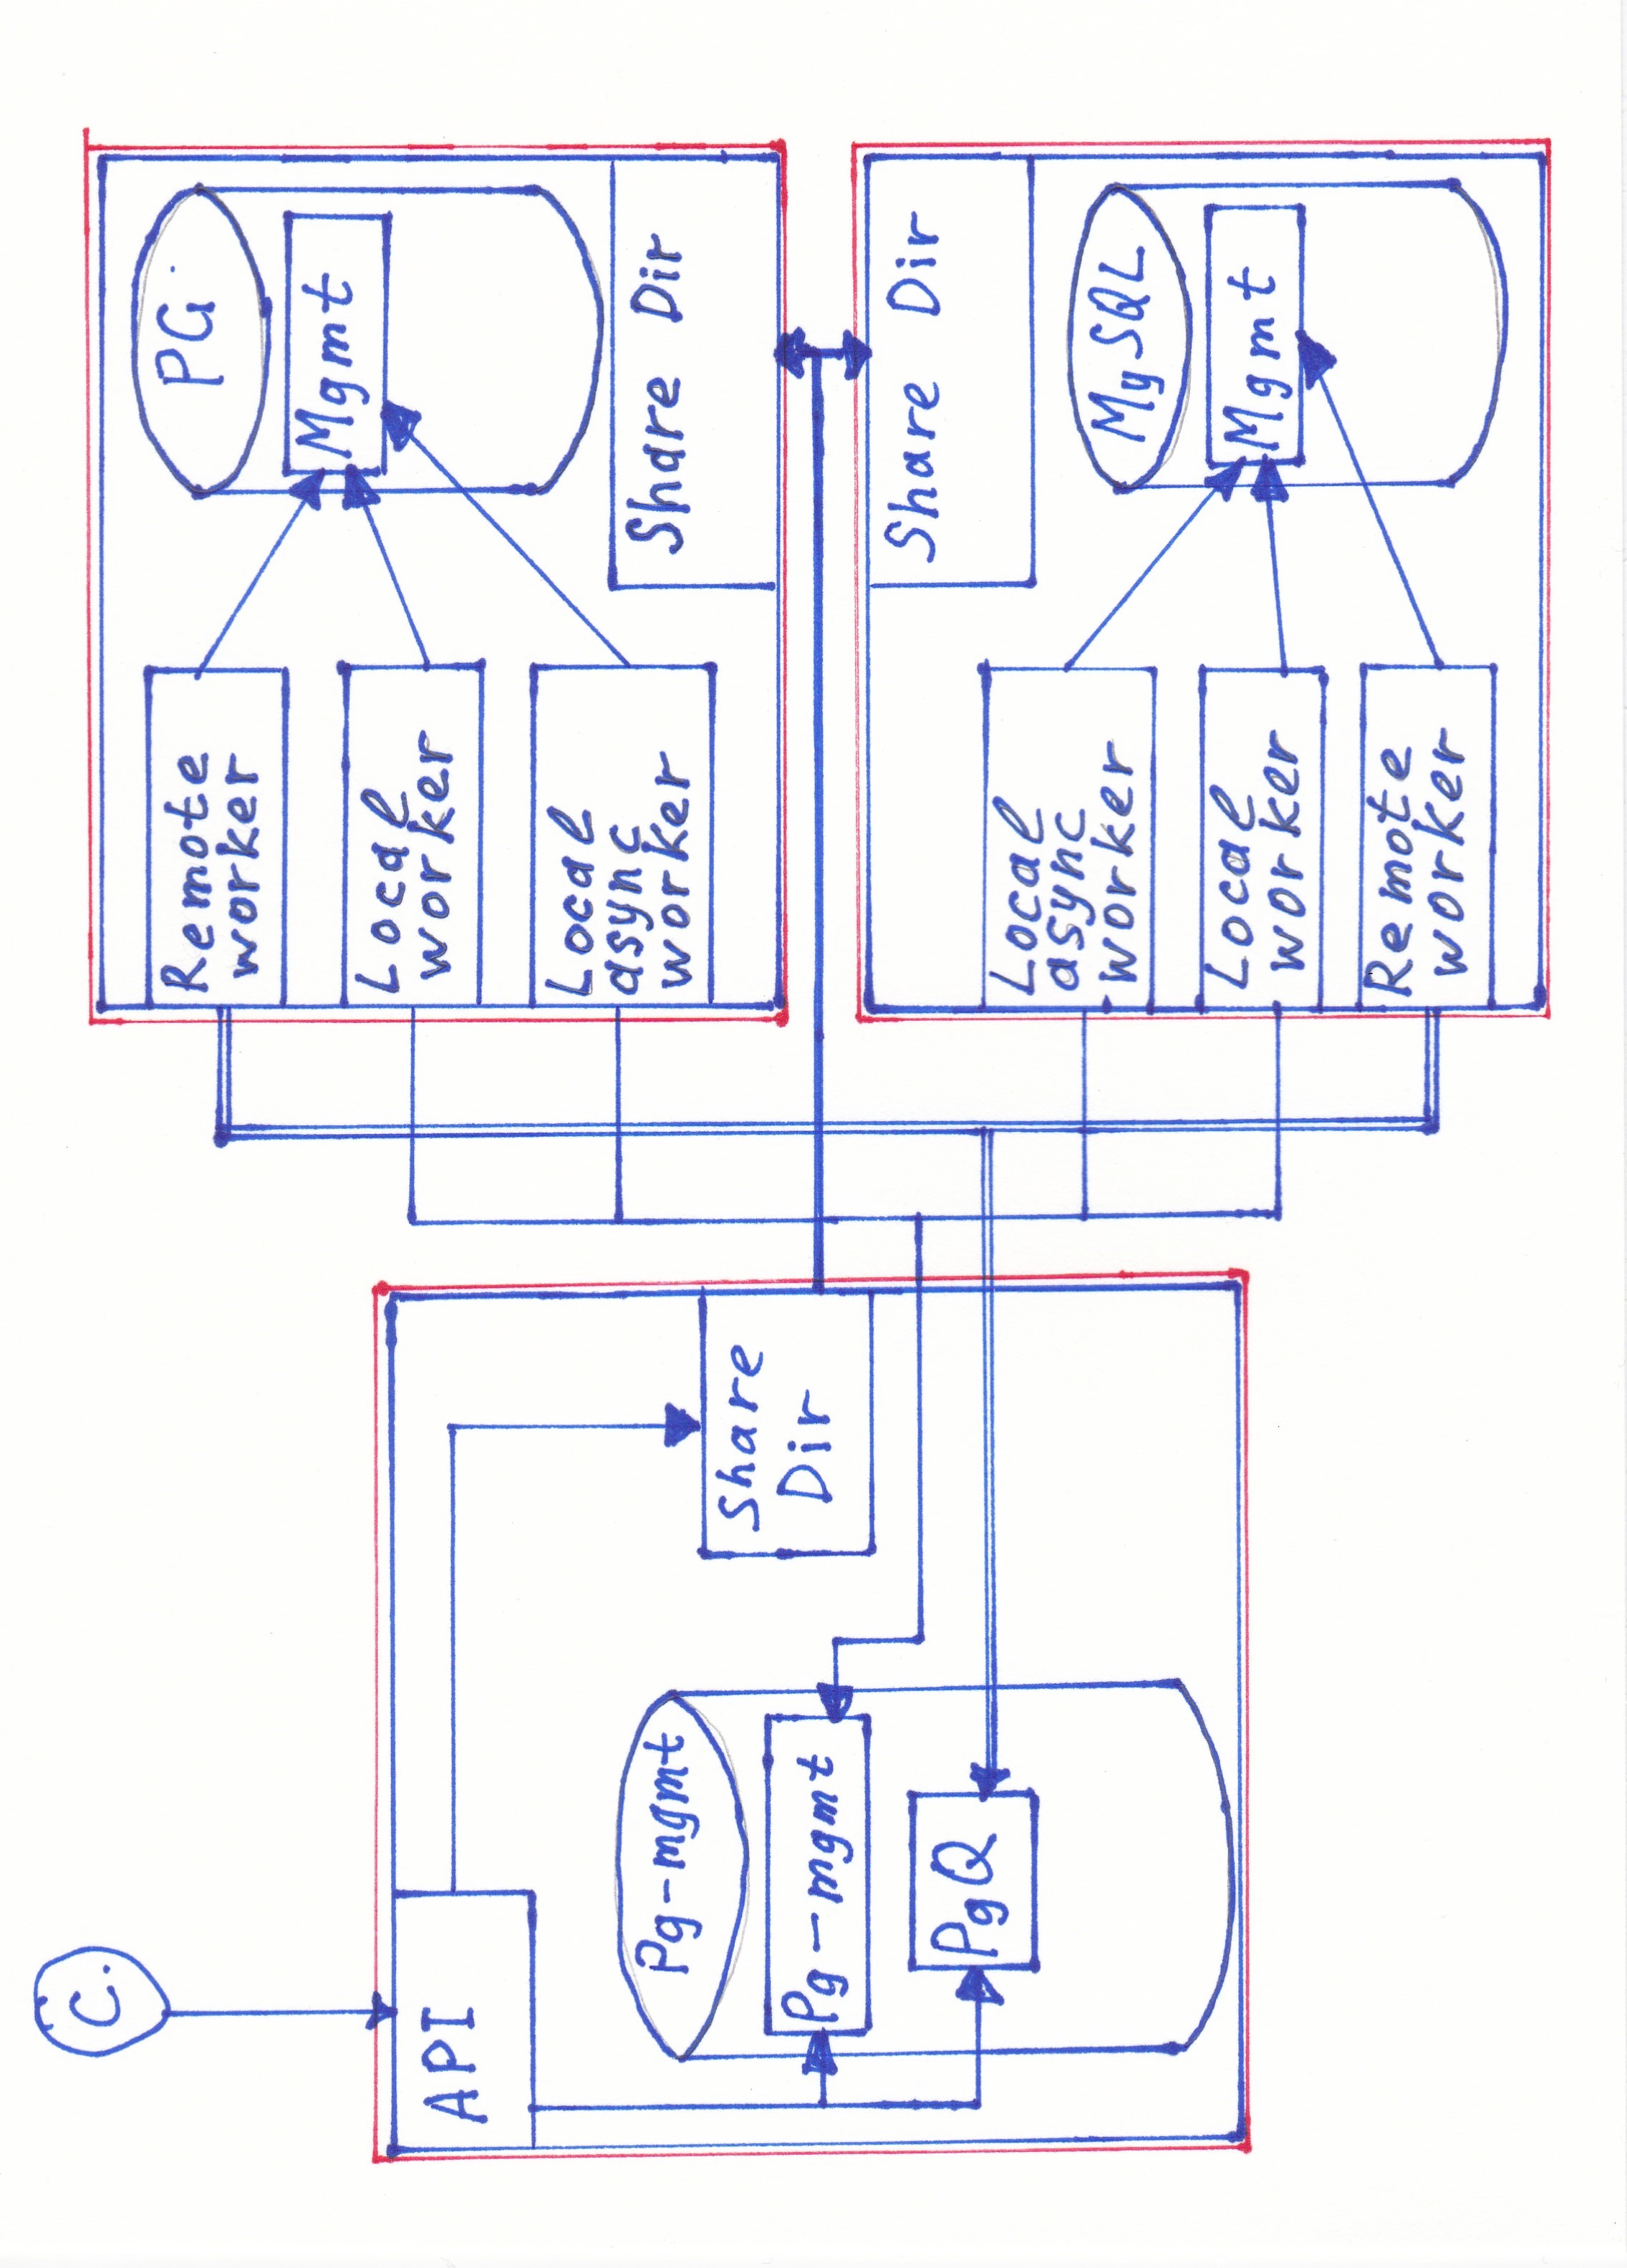 C.
API
Pg-mgmt
Pg-mgmt
PgQ
Share
Dir
Remote
worker
Local
worker
Local
async
worker
PG
Mgmt
Share Dir
Share Dir
Local
async
worker
Local
worker
Remote
worker
MySQL
Mgmt